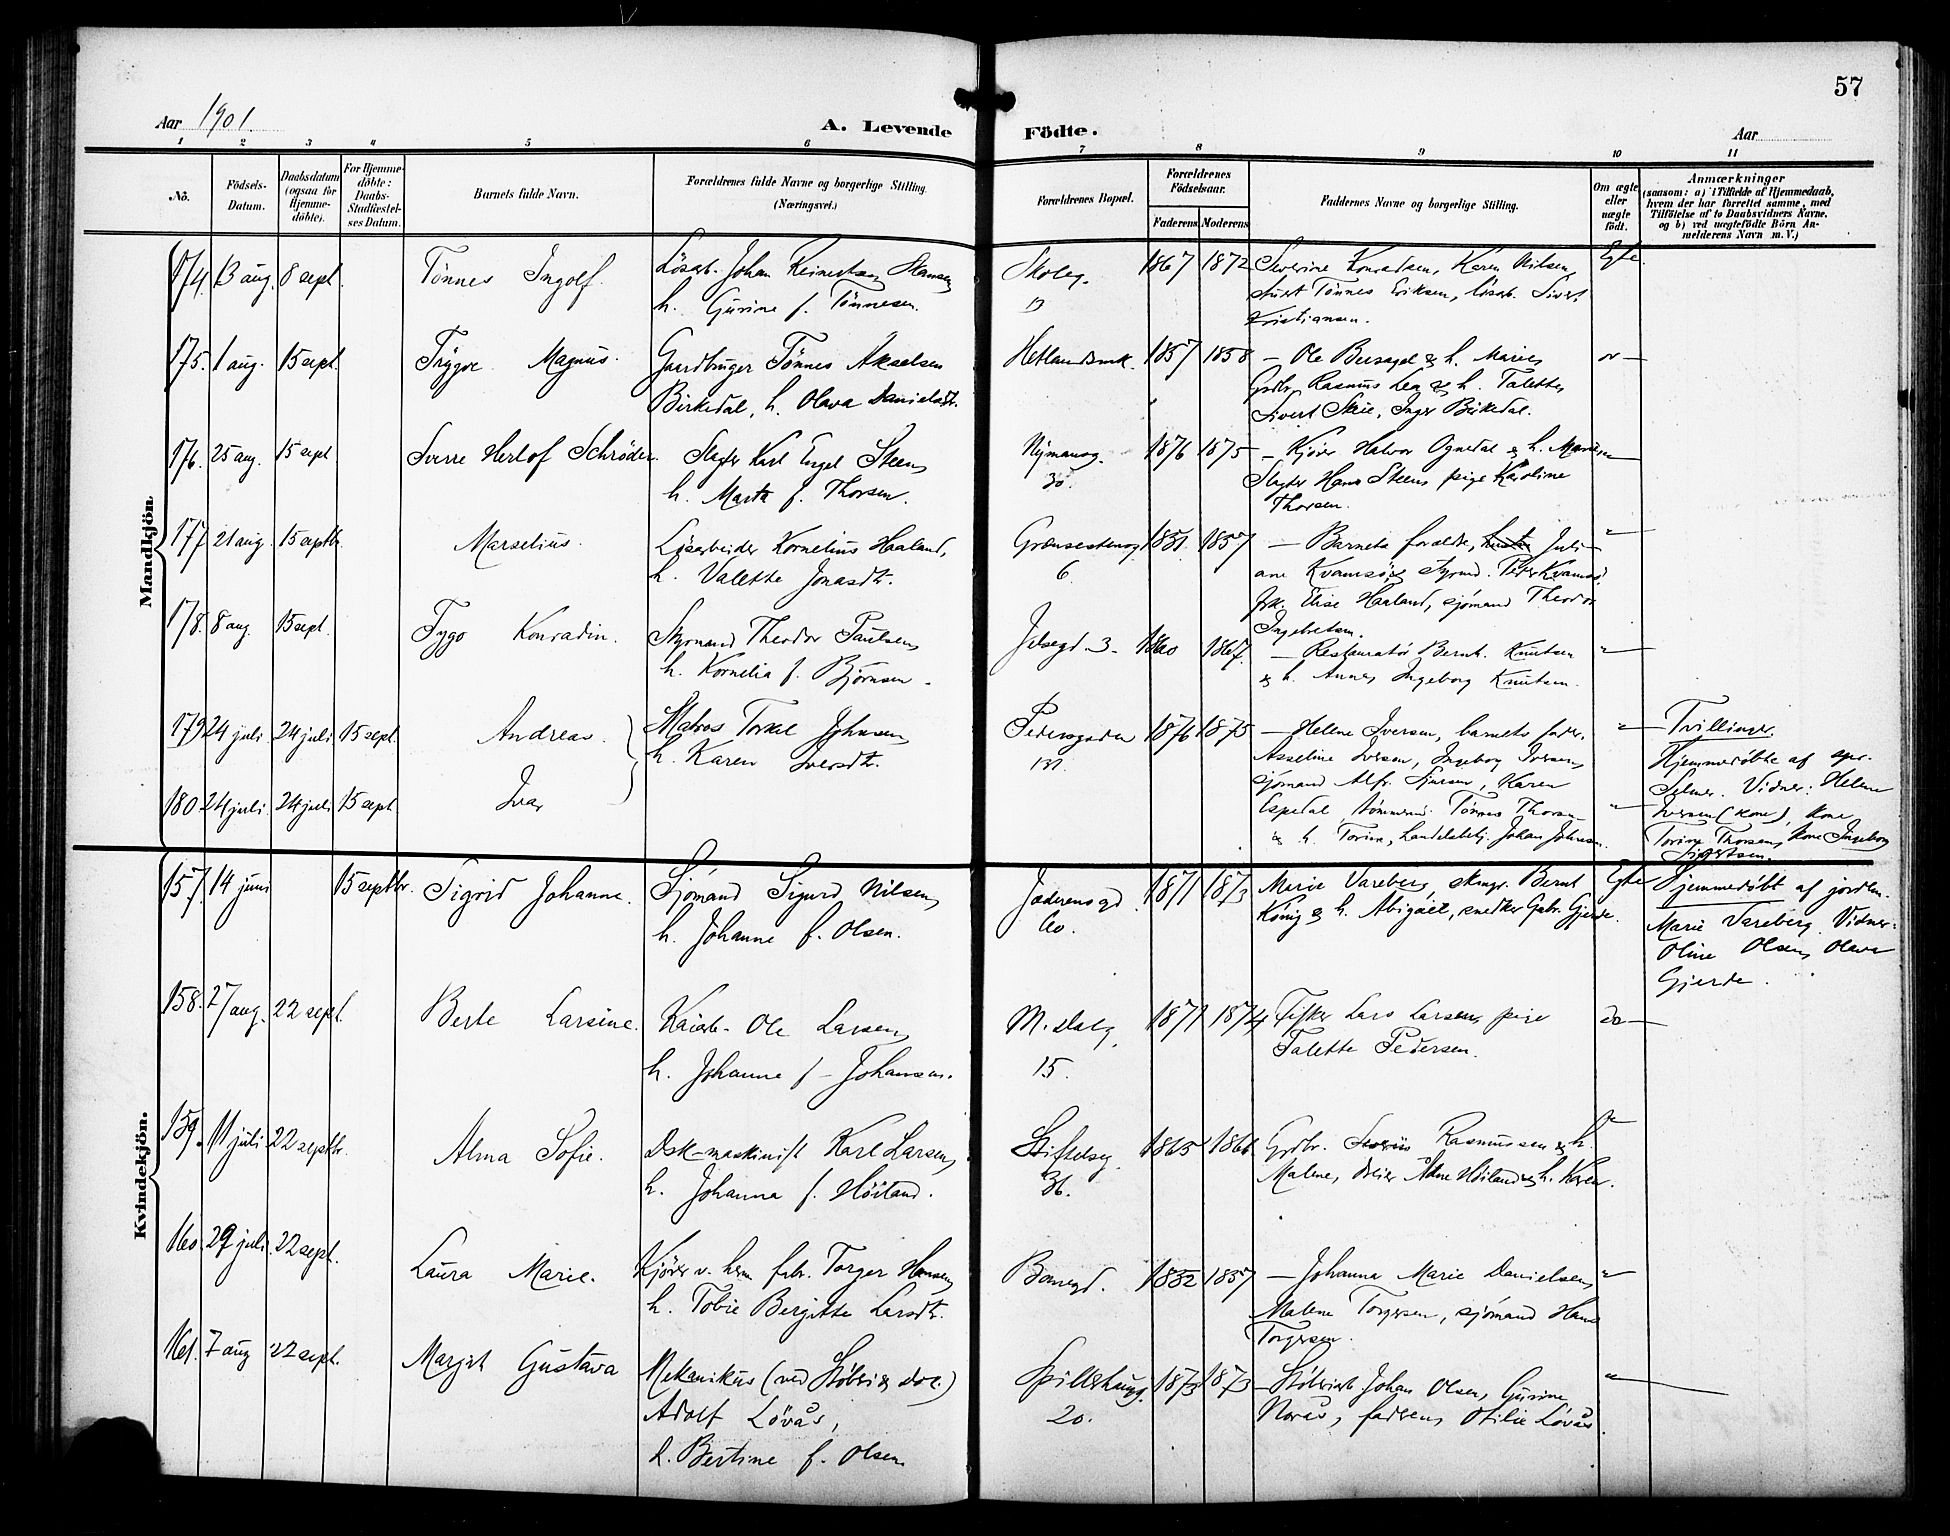 57
Aar 1901.
A. Levende Födte.
Aar
1 2 3 4 5 6 7 8 9 10 11
No.
Födsels-Datum.
Daabsdatum (ogsaa for Hjemme-döbte).
For Hjemme-döbte: Daabs-Stadfæstel-ses Datum.
Barnets fulde Navn.
Forældrenes fulde Navne og borgerlige Stilling. (Næringsvei.)
Forældrenes Bopæl.
Forældrenes Födselsaar.
Faderens Moderens
Faddernes Navne og borgerlige Stilling.
Om ægte eller uægte födt.
Anmærkninger
(saasom: a) i Tilfælde af Hjemmedaab, hvem der har forrettet samme, med Tilföielse af to Daabsvidners Navne, og b) ved uægtefödte Börn An-melderens Navn m. V.)
Mandkjön.
174. 13 aug. 8 sept. Tönnes Ingolf. Lösarb. Johan Reinertsen Hansen
h. Gurine f. Tönnesen.
Skoleg. 13 1867 1872 Severine Konradsen, Karen Nilsen,
Tönnes Eriksen, lösarb. Sivert
Kristiansen.
Egte
175. 1 aug. 15 sept. Trygve Magnus. Gaardbruger Tönnes Akselsen
Birkedal, h. Olava Danielsdt.
Hetlandsmk. 1857 1858 — Ole Bersagel & h. Marie,
Grdbr. Rasmus Lea & h. Talette,
Sivert Skie, Inger Birkedal.
176. 25 aug. 15 sept Sverre Herlof Schrøder. Slagter Karl Engel Steen,
h. Marta f. Thorsen.
Nymansg. 30. 1876 1875 — Kjörer Halvor Ognedal & h. Marie
Slagter Hans Steen, pige Karoline
Thorsen.
177 21 aug. 15 septbr. Marselius. Lösarbeider Kornelius Haaland,
h. Valette Jonasdt.
Grænsestensg. 6. 1851. 1857 — Barnets forældre, Juli-
ane Kvamsö, styrmd. Peter Kvamsö,
frk. Elise Haaland, sjömand Theodor
Ingebretsen.
178. 8 aug. 15 sept. Tygo Konradin. Styrmand Theodor Paulsen,
h. Kornelia f. Björnsen.
Jelsegd. 3- 1860 1867. — Restauratör Bernt. Knutsen
& h. Anne Ingeborg Knutsen.
179 24 juli 24 juli 15 sept. Andreas. Matros Torkel Johnsen,
h. Karen Iversdt.
Pedersgaden 131. 1876 1875 — Helene Iversen, barnets fader,
Asseline Iversen, Ingeborg Iversen,
sjömand Alfr. Sjursen, Karen
Espedal, tömmermd. Tönnes Thorsen
& h. Torine, handelsbetj. Johan Johnsen.
Tvillinger.
Hjemmedöbte af spr.
Selmer. Vidner: Helene
Iversen (kone), kone
Torine Thorsen, kone Ingeborg
Sivertsen.
180. 24 juli. 24 juli 15 sept. Ivar
Kvindekjön.
157. 14 juni 15 septbr. Sigrid Johanne. Sjömand Sigurd Nilsen,
h. Johanne f. Olsen.
Jæderensgd. 60. 1871 1873 Marie Vareberg, skmgr. Bernt
König & h. Abigael, snedker Gabr. Gjerde.
Egte
Hjemmedöbt af jordm.
Marie Vareberg. Vidner:
Oline Olsen, Olava
Gjerde.
158. 27 aug. 22 sept. Berte Larsine. Kaiarb. Ole Larsen,
h. Johanne f. Johansen.
M. dalg. 15. 1871 1874 Fisker Lars Larsen, pige
Talette Pedersen.
do —
159. 11 juli 22 septbr. Alma Sofie. Dsk-maskinist Karl Larsen,
h. Johanna f. Höiland.
Stiftelsg. 36. 1865 1866 Grdbr. Severin Rasmussen & h.
Malene, dreier Adne Höiland & h. Karen.
160. 29 juli. 22 sept. Laura Marie. Kjörer v. herm. fabr. Torger Hansen,
h. Tobie Bergitte Larsdt.
Banegd. 1852 1857 — Johanna Marie Danielsen,
Malene Torgersen, sjömand Hans
Torgersen.
161. 7 aug 22 sept. Margit Gustava Mekanikus (ved Stöberi & dok.)
Adolf Lövås,
h. Bertine f. Olsen.
Spilderhaugg. 20. 1873 1873 — Johan Olsen, Gurine
Norås, faderen, Otilie Lövås.